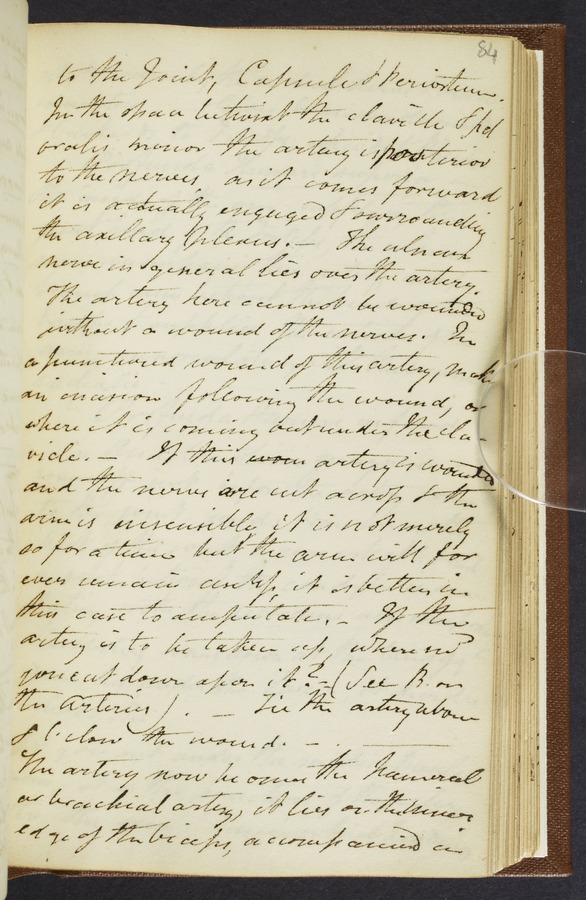 84
to the Joint, Capsule & Periosteum.
In the space betwixt the clavicle & pect
oralis minor the artery is posterior
to the nerves, as it comes forward
it is actually engaged & surrounding
the axillary Plexus. — The ulnar
nerve in general lies over the artery.
The artery here cannot be wounded
without a wound of the nerves. In
a punctured wound of this artery, make
an incision following the wound, or
where it is coming out under the cla-
vicle. — If this artery is wounded
and the nerves are cut across & the
arm is insensible, it is not merely
so for a time but the arm will for
ever remain useless, it is better in
this case to amputate. — If the
artery is to be taken up, where wd
you cut down upon it? — (See B. on
the arteries). — Tie the artery above
& below the wound. —
The artery now becomes the humeral
or brachial artery, it lies on the inner
edge of the biceps, accompanied in